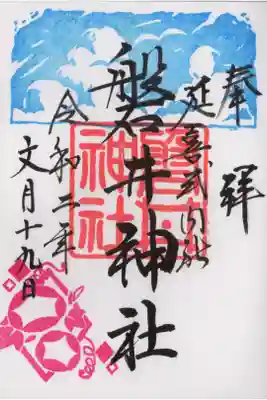 奉拝
延喜式内社
磐井神社
磐井
神社
令和二年
文月十九日